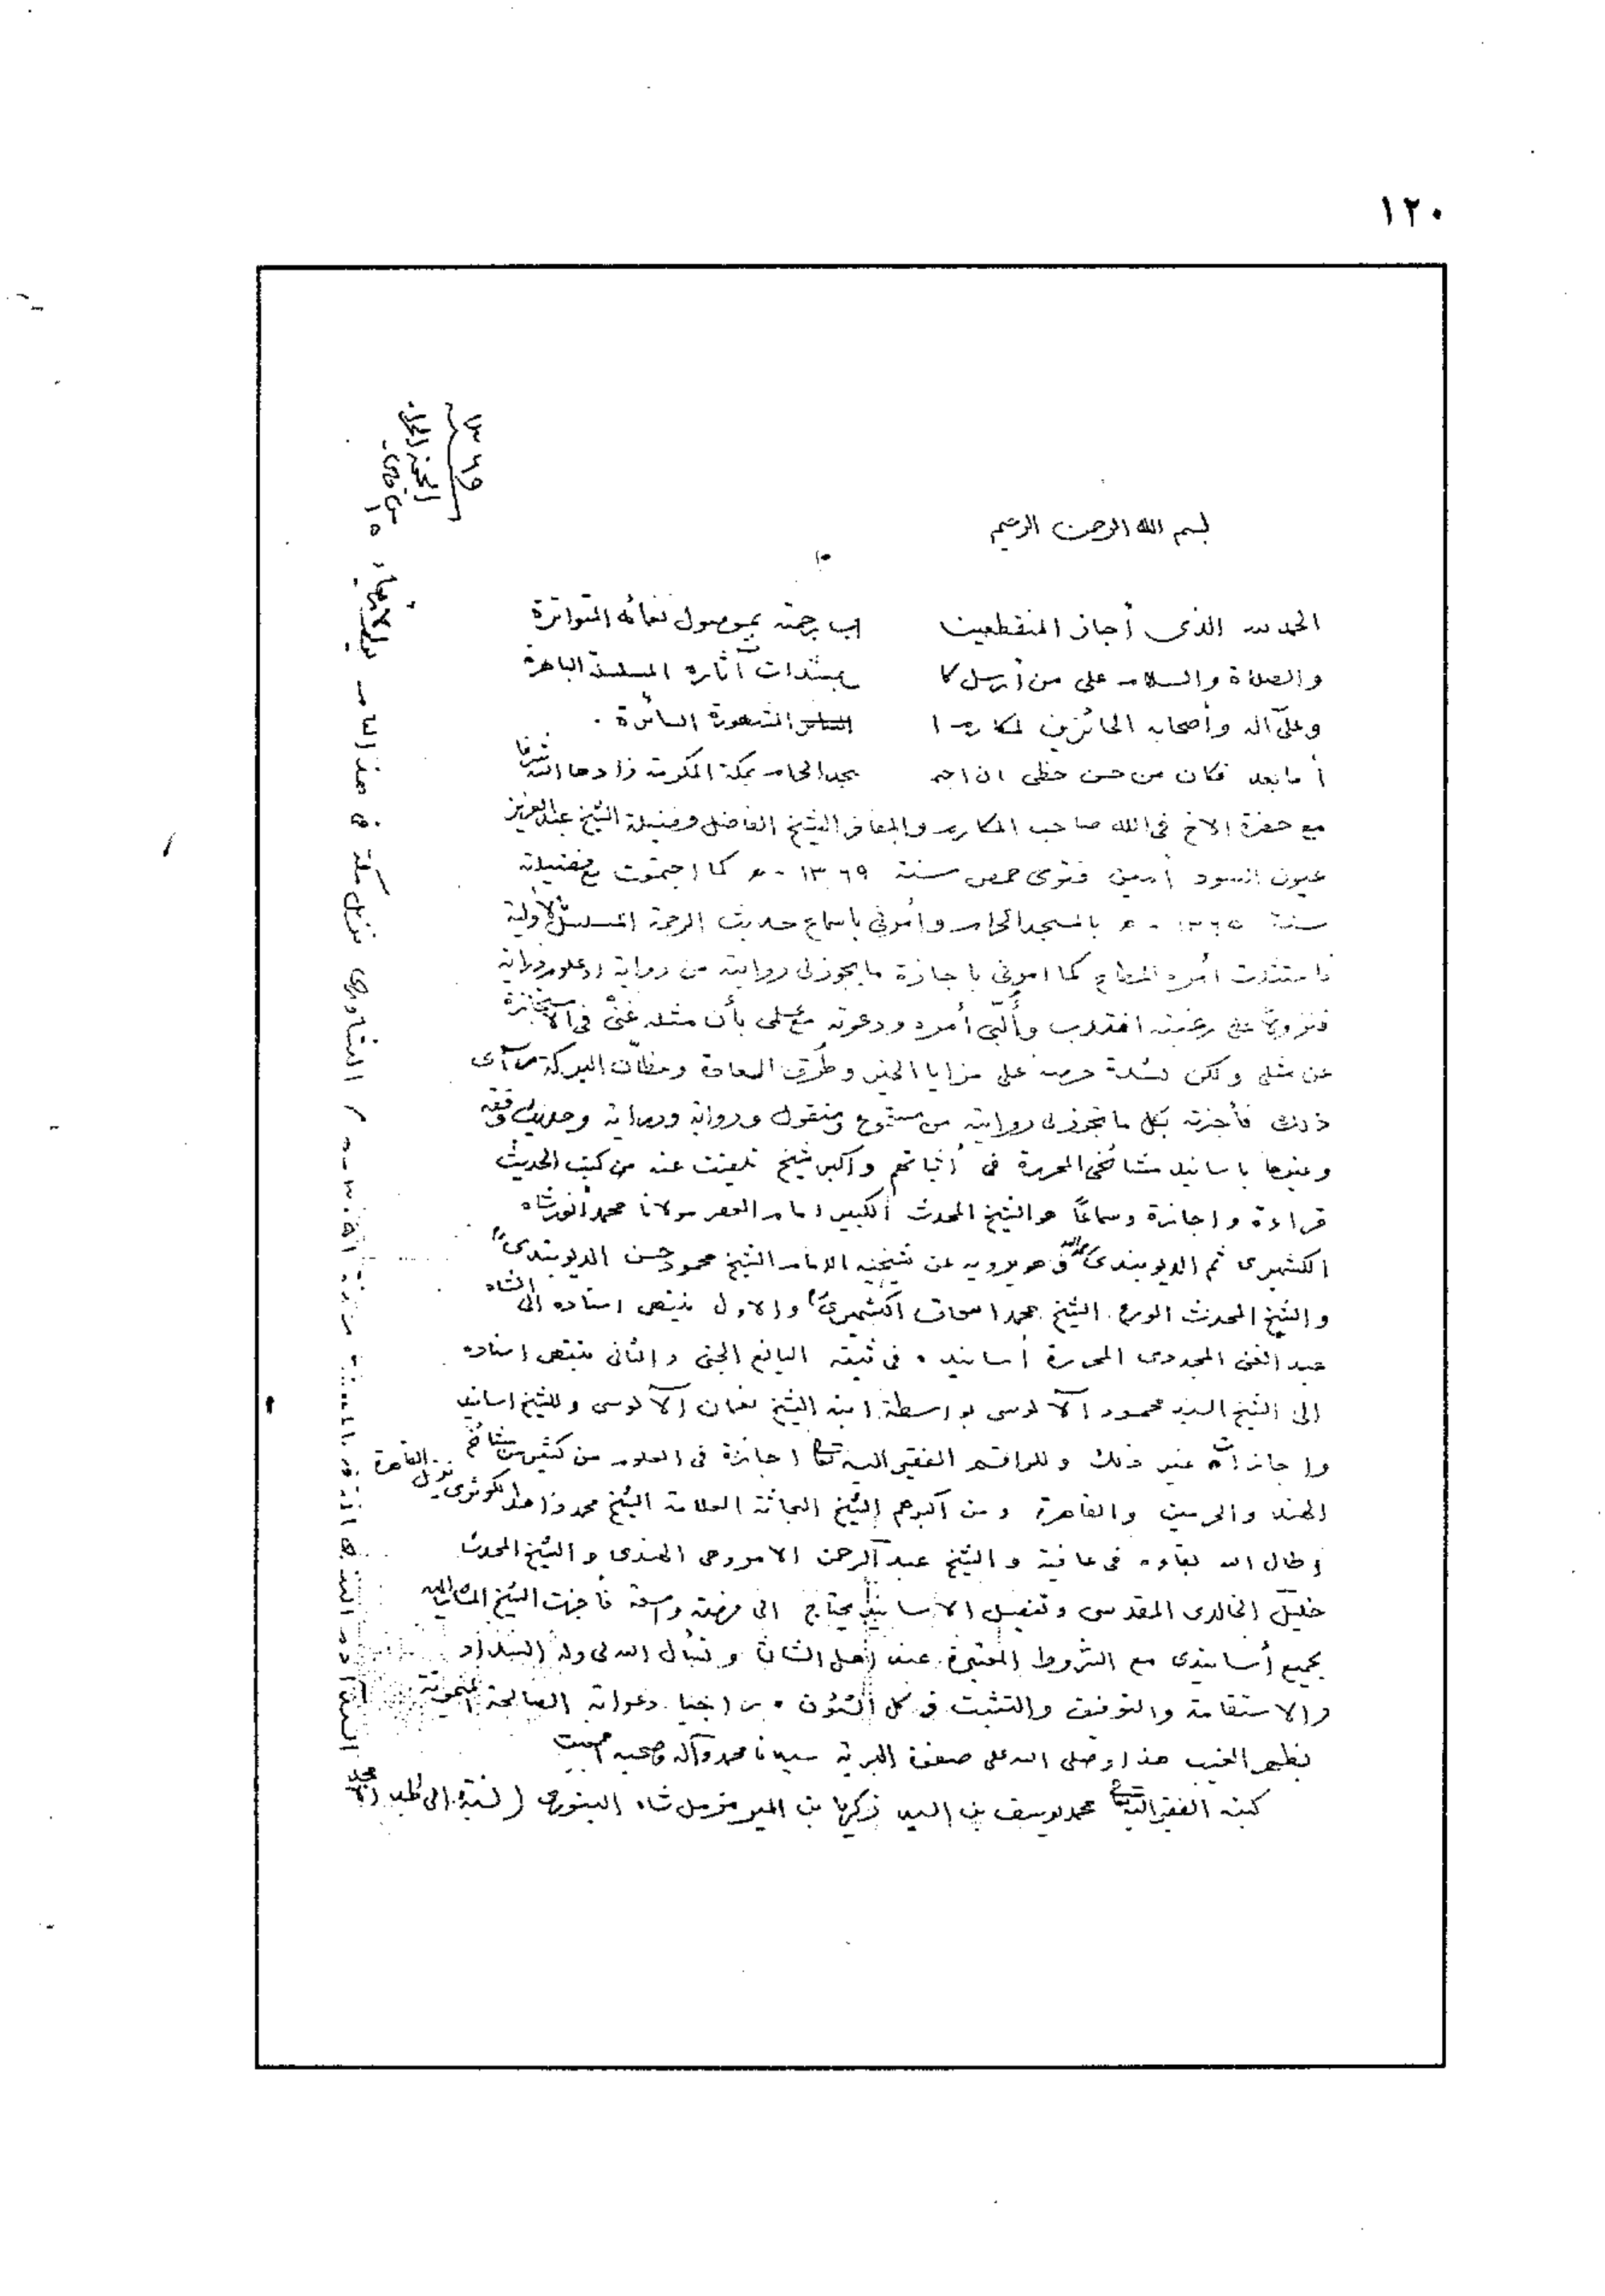 ١٢٠
بسم الله الرحمن الرحيم
الحمد لله الذى أجاز المنقطعين برحمته بموصول نعمائه المتواترة
والصلاة والسلام على من أرسل آثاره المسلسلة الباهرة
وعلى آله وأصحابه الحائزين لمكارم المشهورة السائرة .
أما بعد فكان من حسن حظى ان اجتمعت بمكة المكرمة زادها الله شرفا
مع حضرة الاخ فى الله صاحب المكارم والمفاخر الشيخ الفاضل وفضيلة الشيخ عبد العزيز
عيون السود أمين فتوى حمص سنة ١٣٦٩ هـ كما اجتمعت مع فضيلته
سنة ١٣٦٥ هـ بالمسجد الحرام وأمرنى باسماع حديث الرحمة المسلسل بالأولية
فامتثلت أمره المطاع كما امرنى باجازة ما يجوز لى روايته من رواية وعلوم دراية
فنزولا على رغبته وألبّى أمره ودعوته مع علمى بأن مثله غنىّ فى الاستجازة
عن مثلى ولكن لشدة حرصه على مزايا الخير وطرق السعادة ومظانّ البركة رآى
ذلك فأجزته بكل ما تجوز لى روايته من مسموع ومنقول ورواية ودراية وحديث وفقه
وغيرها باسانيد مشائخى المحررة فى أثباتهم وأكبر شيخ تلقيت عنه من كتب الحديث
قراءة واجازة وسماعًا هو الشيخ المحدث الكبير امام العصر مولانا محمد أنور شاه
الكشميرى ثم الديوبندى رحمه الله وهو يرويه عن شيخيه الامام الشيخ محمود حسن الديوبندى
والشيخ المحدث الورع الشيخ محمد اسحاق الكشميرى والاول ينتهى اسناده الى الشاه
عبد الغنى المجددى المحررة أسانيده فى ثبته اليانع الجنى والثانى ينتهى اسناده
الى الشيخ السيد محمود الآلوسى بواسطة ابنه الشيخ نعمان الآلوسى وللشيخ اسانيد
واجازات غير ذلك وللراقم الفقير اليه تعالى اجازة فى العلوم من كثير من مشائخ
الهند والحرمين والقاهرة ومن أكبرهم الشيخ البحاثة العلامة الشيخ محمد زاهد الكوثرى نزيل القاهرة
أطال الله بقاءه فى عافية والشيخ عبد الرحمن الامروهى الهندى والشيخ المحدث
خليل الخالدى المقدسى وتفصيل الاسانيد يحتاج الى فرصة واسعة فأجزت الشيخ المشار اليه
بجميع أسانيدى مع الشروط المعتبرة عند أهل الشأن ونسأل الله لى وله السداد
والاستقامة والتوفيق والتثبت فى كل الشئون راجيا دعواته الصالحة
بظهر الغيب هذا وصلى الله على صفوة البرية سيدنا محمد وآله وصحبه أجمعين
كتبه الفقير اليه تعالى محمد يوسف بن السيد زكريا بن المير مزمل شاه البنورى (نسبة الى
نزيل مكة فى هذا العام
١٣٦٩